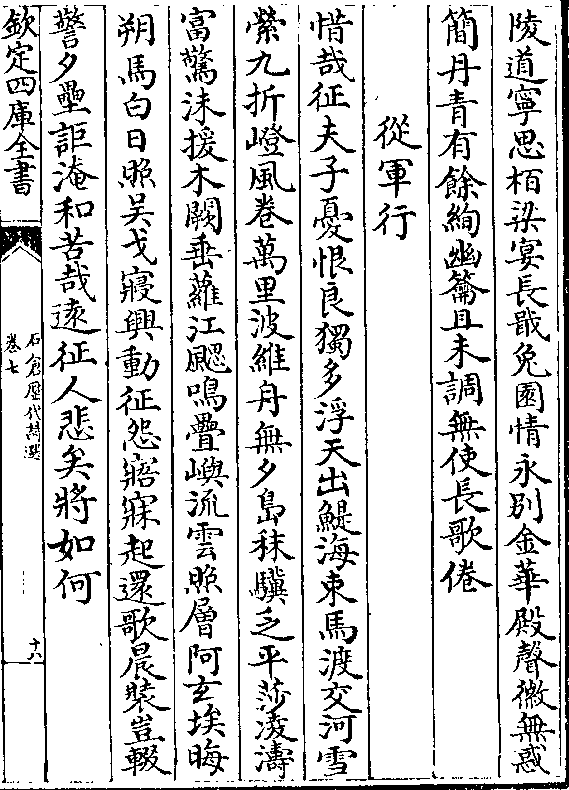 陵道寧思栢梁宴長戢兔園情永别金華殿聲徽無惑
簡丹青有餘絢幽籥且未調無使長歌倦
從軍行
惜哉征夫子憂恨良獨多浮天出鯷海束馬渡交河雪
縈九折嶝風卷萬里波維舟無夕島秣驥乏平莎凌濤
富驚沫援木闕垂蘿江颸鳴疊嶼流雲照層阿玄埃晦
朔馬白日照吴戈寢興動征怨寤寐起還歌晨裝豈輟
警夕壘詎淹和苦哉遠征人悲矣將如何
欽定四庫全書
石倉歷代詩選
卷七
十八